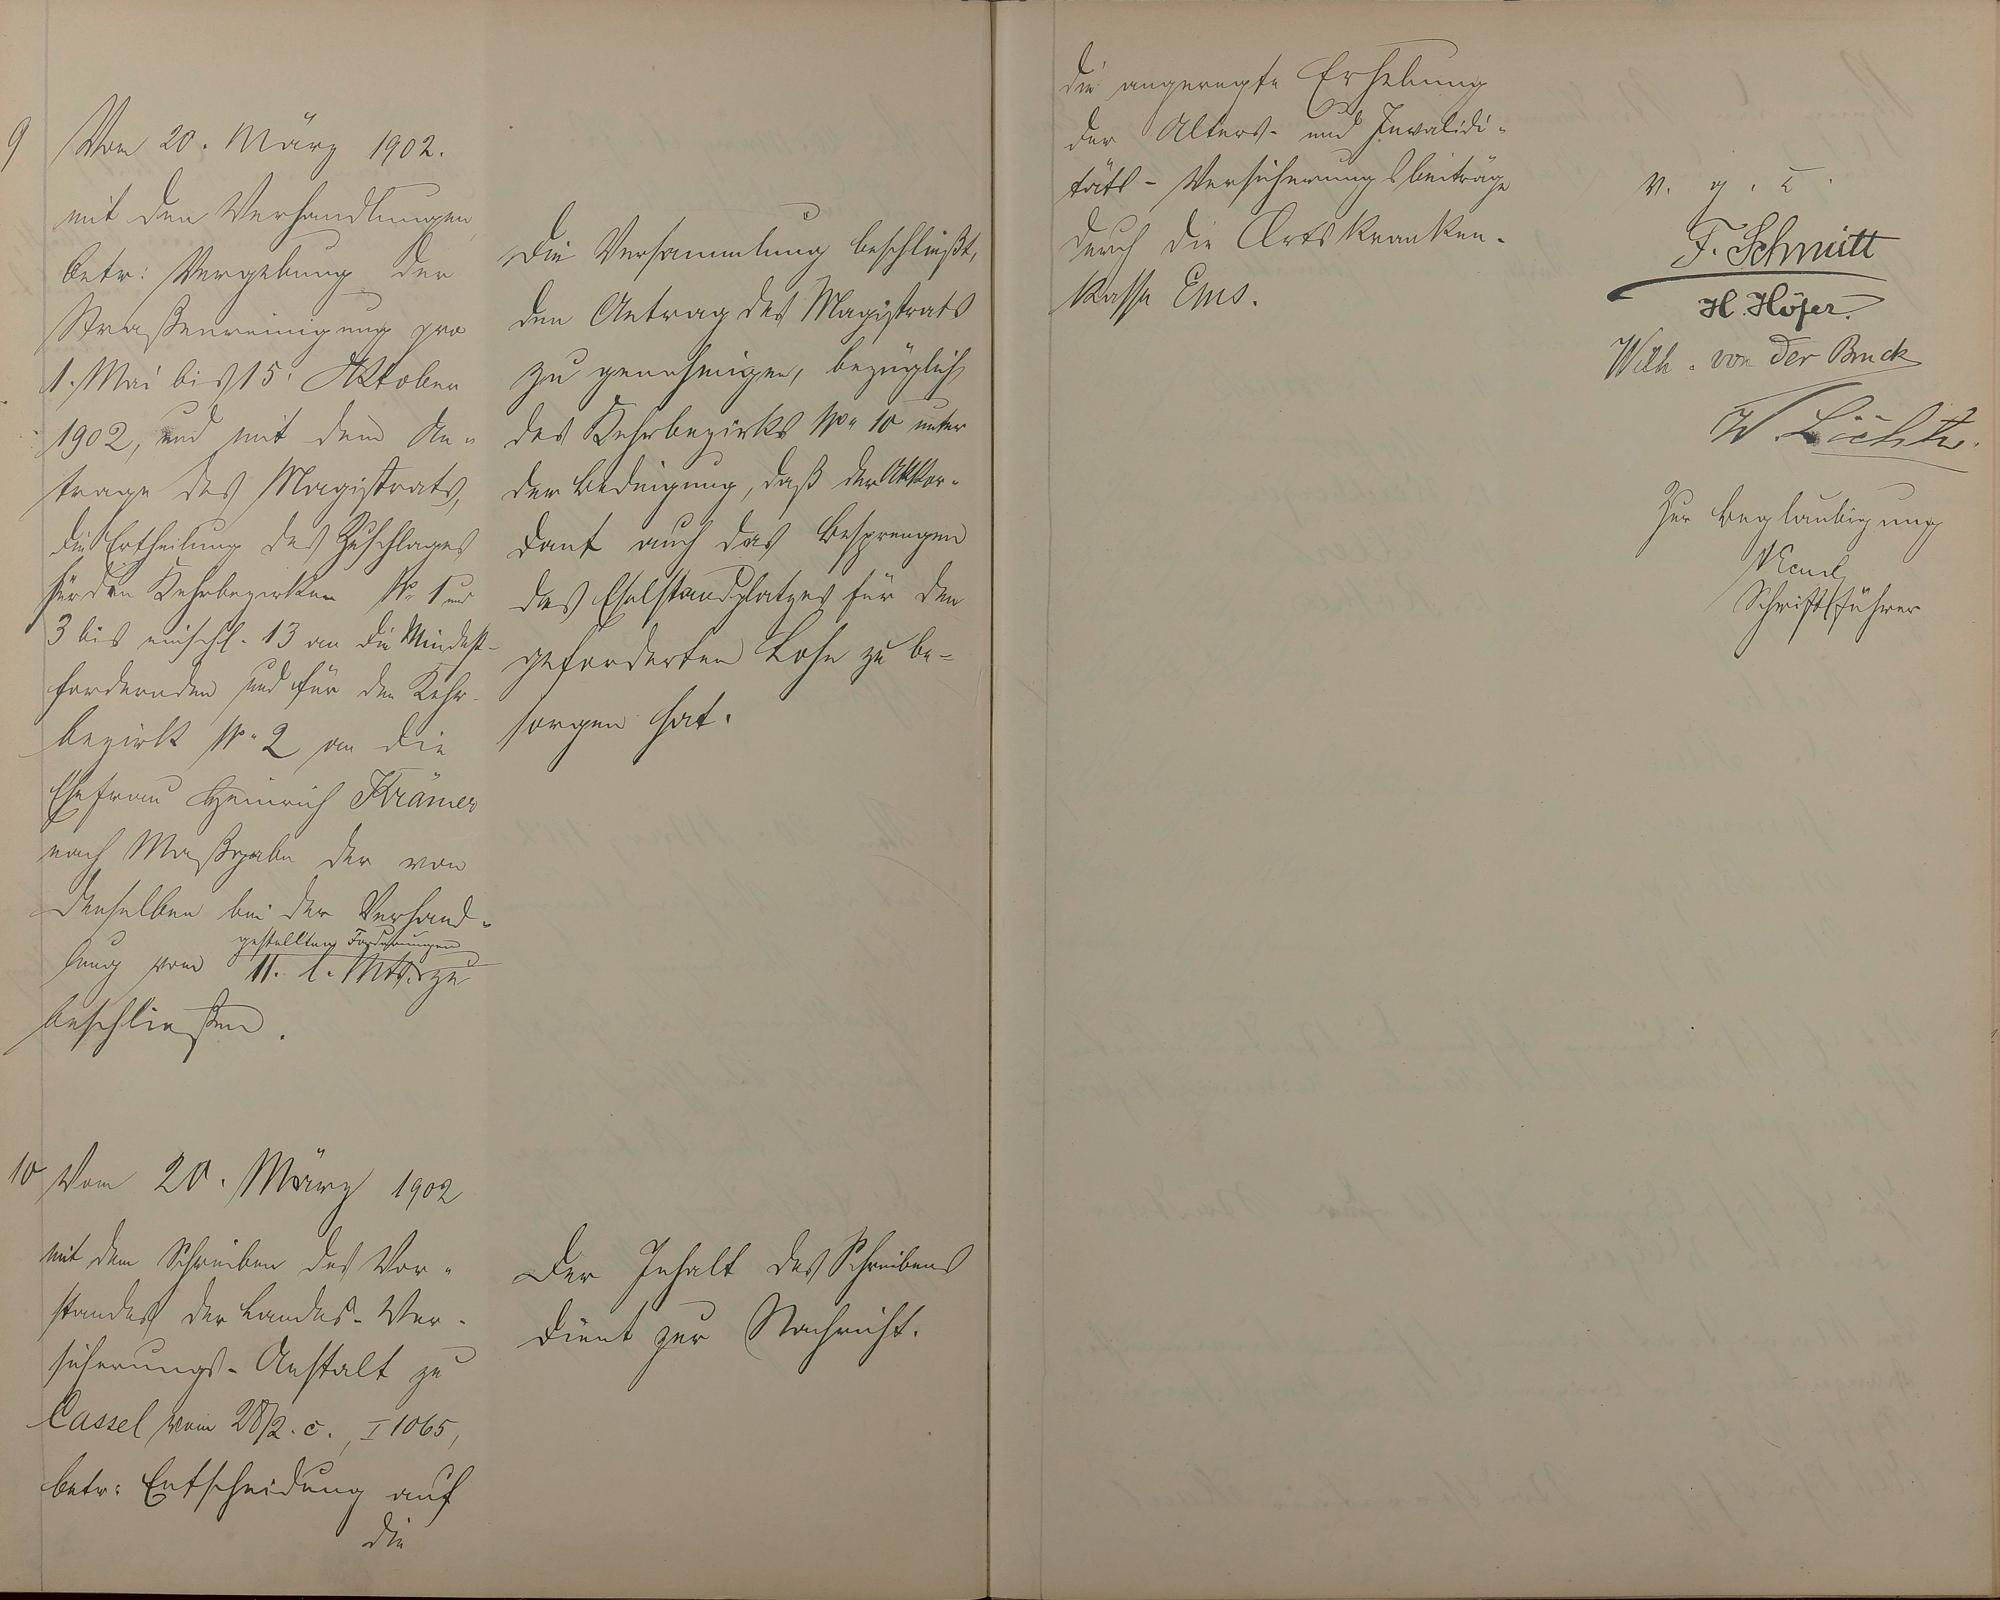 9 Vom 20. März 1902.
mit den Verhandlungen
betr: Vergebung der
Straßenreinigung pro
1. Mai bis 15. Oktober
1902, und mit dem An-
trage des Magistrats,
die Ertheilung des Zuschlages
für den Kehrbezirken No 1 und
3 bis einschl. 13 an die Mindest-
fordernden und für den Kehr-
bezirk No 2 an die
Ehefrau Heinrich Krämer
nach Maßgabe der von
denselben bei der Verhand-
gestellten Forderungen
lung vom 11. l. Mts. zu
beschließen.
Die Versammlung beschließt,
den Antrag des Magistrats
zu genehmigen, bezüglich
des Kehrbezirks No 10 unter
der Bedingung, daß der Akkor-
dant auch das Besprengen
des Eselstandplatzes für den
geforderten Lohn zu be-
sorgen hat.
10 Vom 20. März 1902
mit dem Schreiben des Vor-
standes der Landes-Ver-
sicherungs-Anstalt zu
Cassel vom 28/2. c., I 1065,
betr: Entscheidung auf
die
Der Inhalt des Schreibens
dient zur Nachricht.
die angeregte Erhebung
der Alters- und Invalidi-
täts-Versicherungsbeiträge
durch die Ortskranken-
kasse Ems.
v. g. u.
F. Schmitt
H. Höfer.
Wilh. von der Bruck
W.
Zur Beglaubigung
Schriftführer